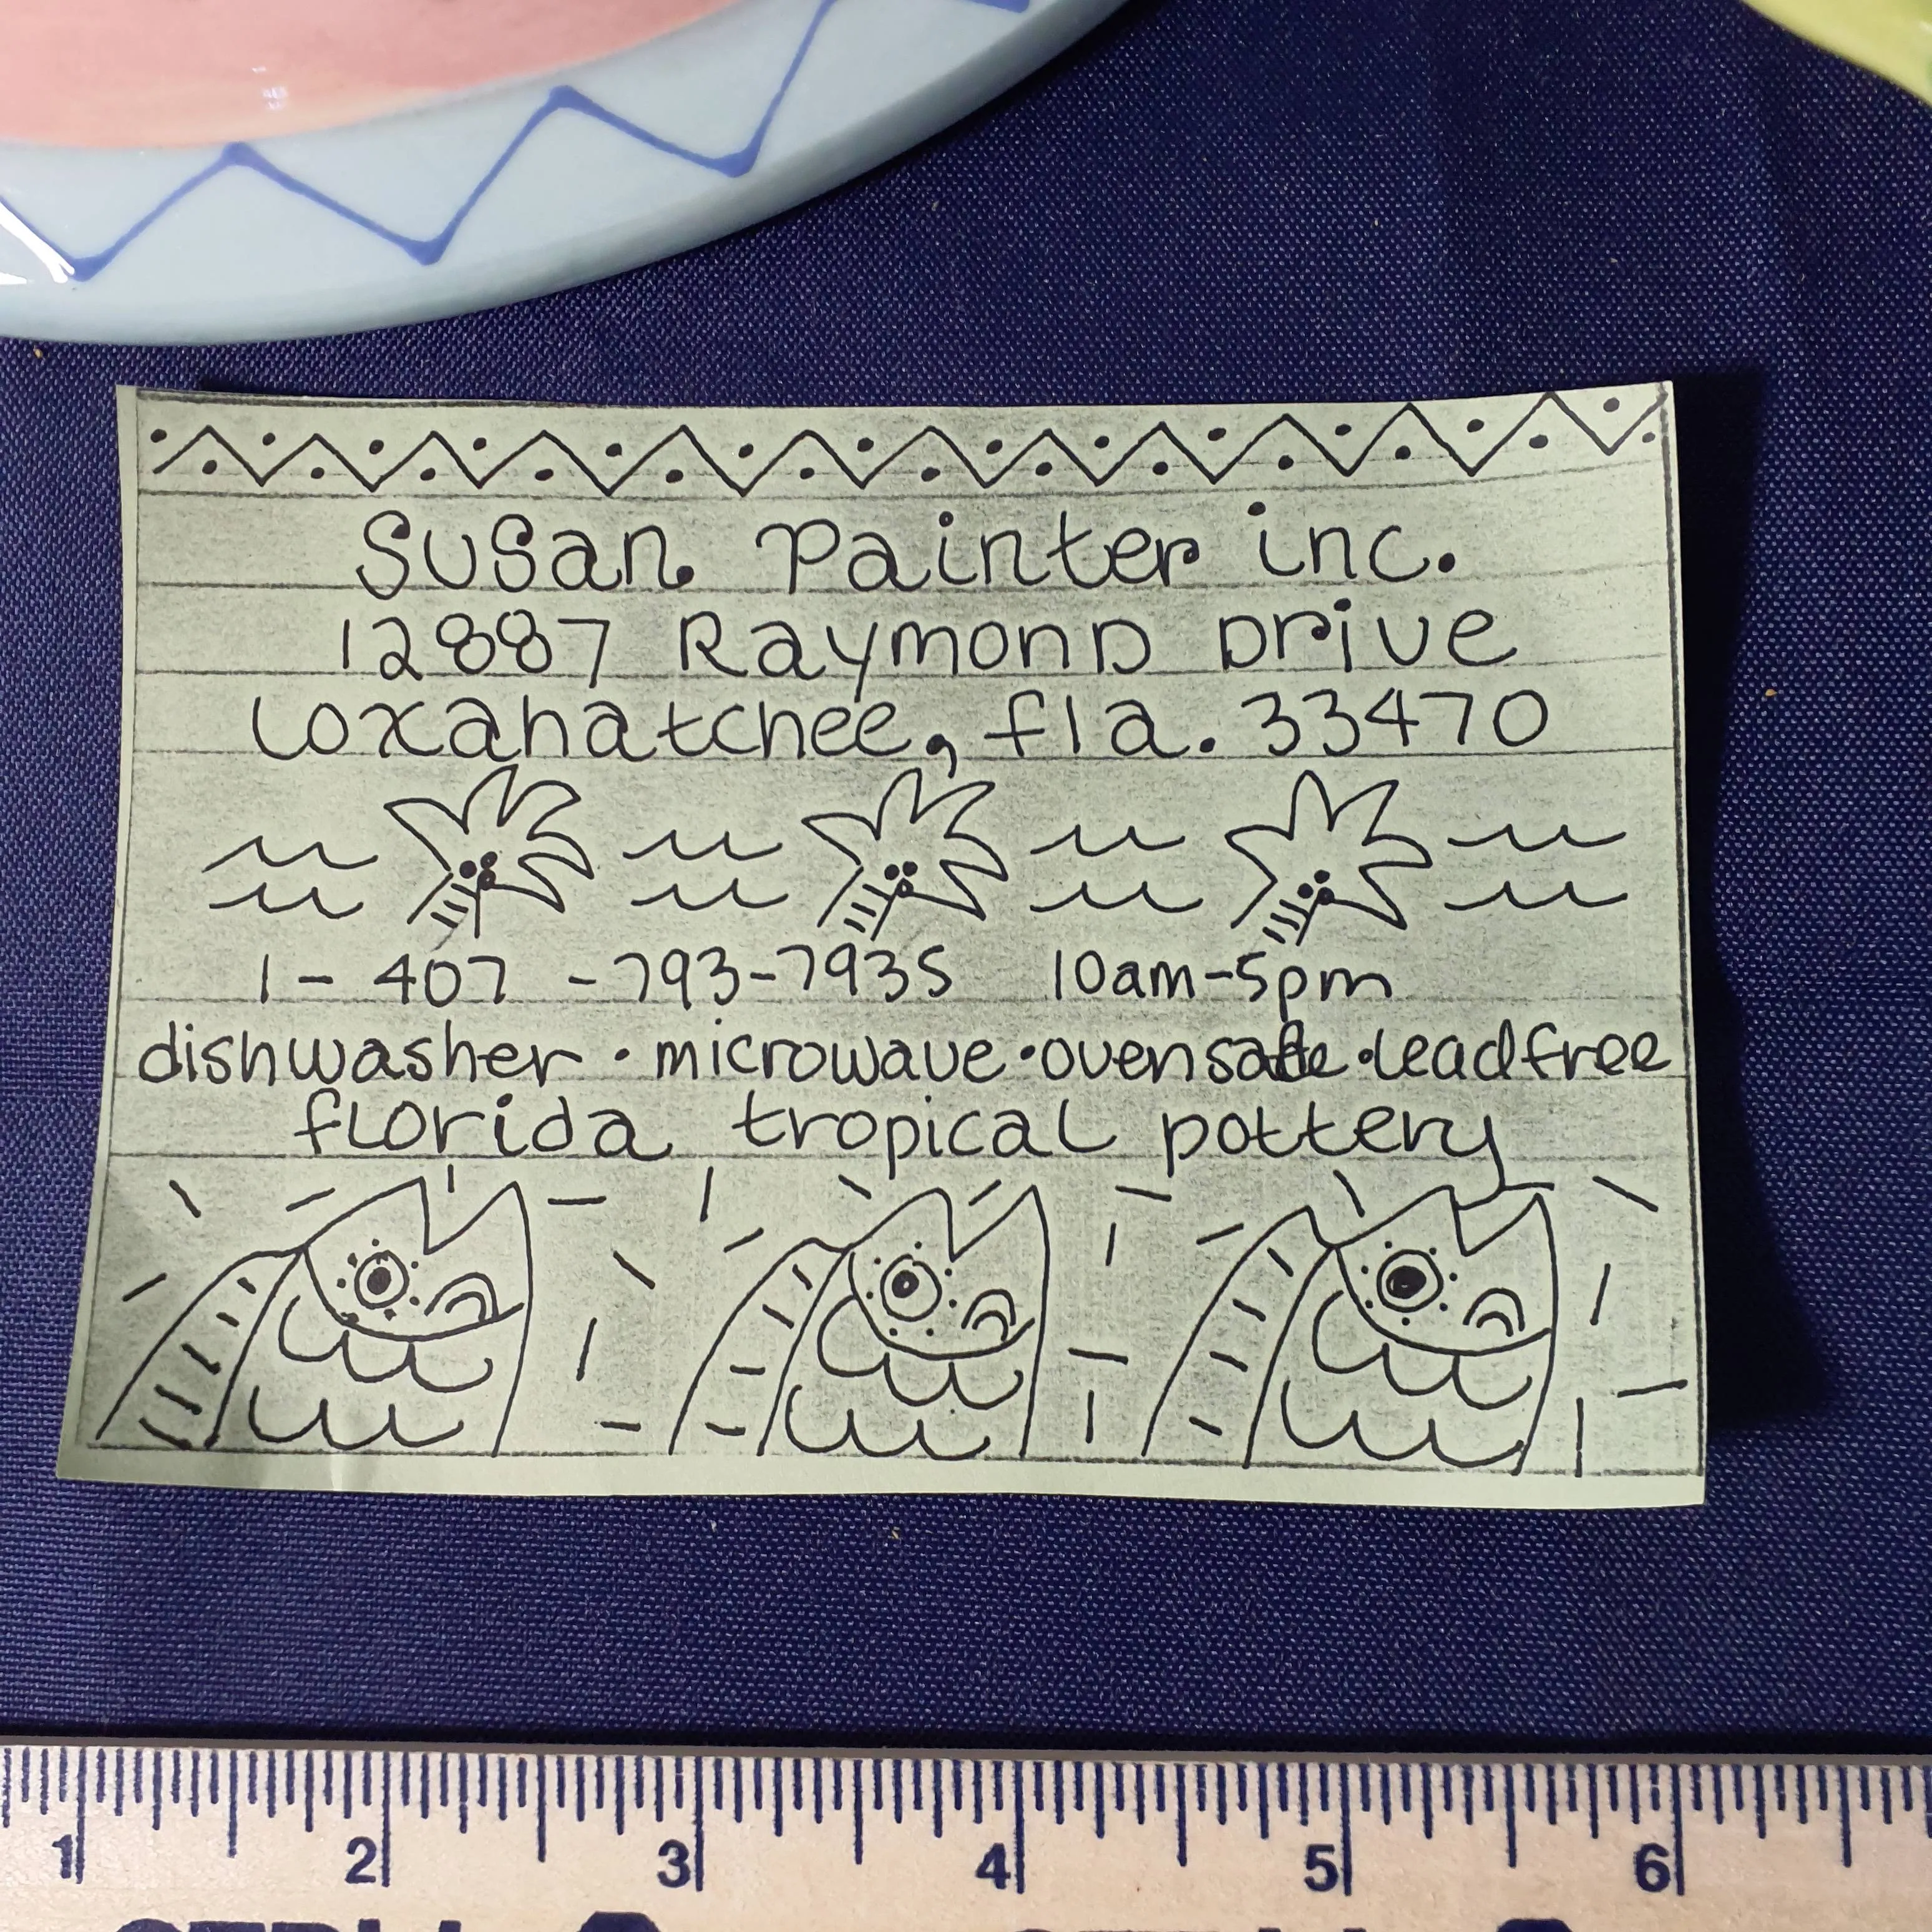 Susan Painter inc.
12887 Raymond Drive
Loxahatchee, fla. 33470
1 - 407 - 793-7935 10am-5pm
dishwasher • microwave • oven safe • lead free
florida tropical pottery
1 2 3 4 5 6